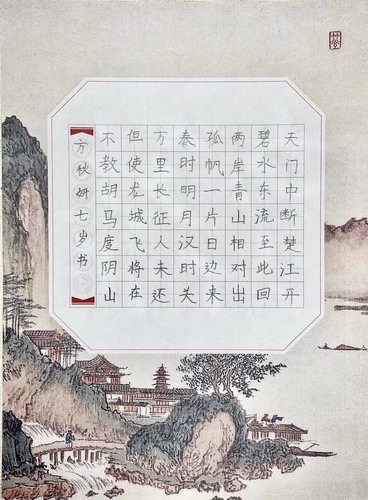 天门中断楚江开
碧水东流至此回
两岸青山相对出
孤帆一片日边来
秦时明月汉时关
万里长征人未还
但使龙城飞将在
不教胡马度阴山
方秋妍七岁书